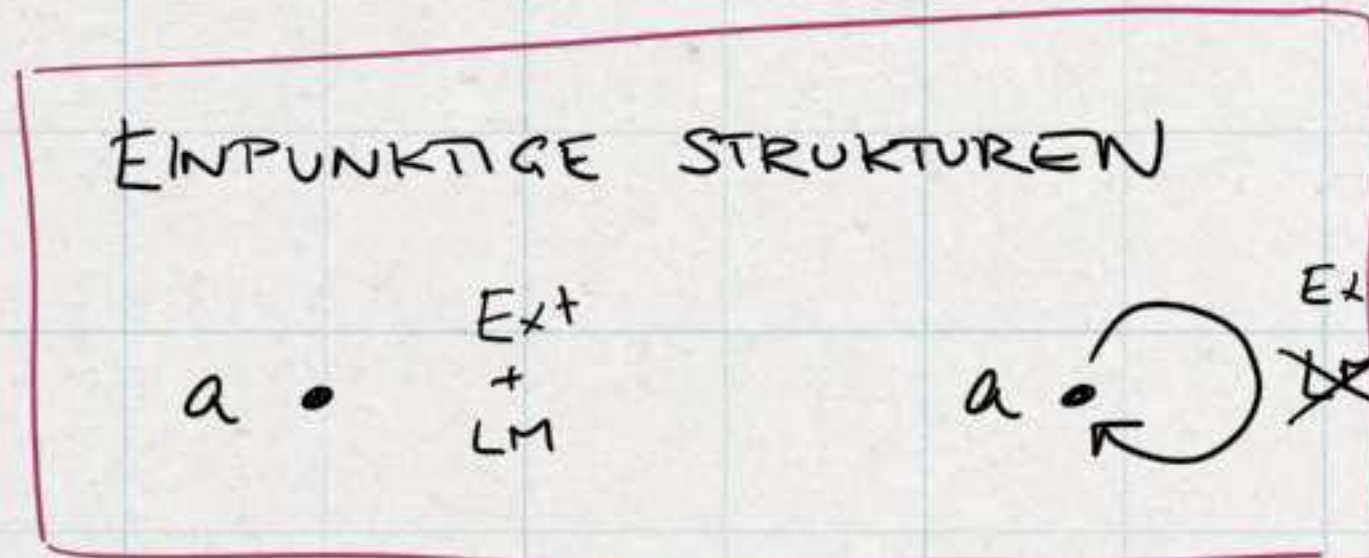 EINPUNKTIGE STRUKTUREN
a • Ext
+
LM
a •